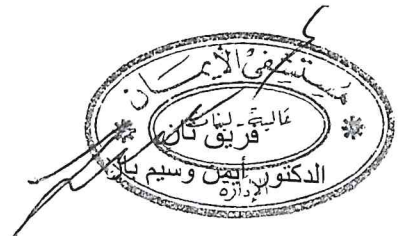 مستشفى الإيمان
عاليه - لبنان
فريق ثان
الدكتور أيمن وسيم
الإدارة